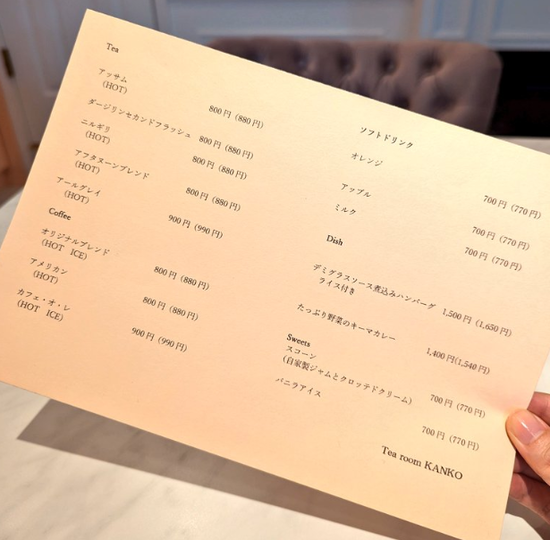 Tea
アッサム 800円（880円）
（HOT）
ダージリンセカンドフラッシュ 800円（880円）
ニルギリ 800円（880円）
（HOT）
アフタヌーンブレンド 800円（880円）
（HOT）
アールグレイ 900円（990円）
（HOT）
Coffee
オリジナルブレンド 800円（880円）
（HOT ICE）
アメリカン 800円（880円）
（HOT）
カフェ・オ・レ 900円（990円）
（HOT ICE）
ソフトドリンク
オレンジ 700円（770円）
アップル 700円（770円）
ミルク 700円（770円）
Dish
デミグラスソース煮込みハンバーグ 1,500円（1,650円）
ライス付き
たっぷり野菜のキーマカレー 1,400円(1,540円)
Sweets
スコーン 700円（770円）
（自家製ジャムとクロッテドクリーム）
バニラアイス 700円（770円）
Tea room KANKO